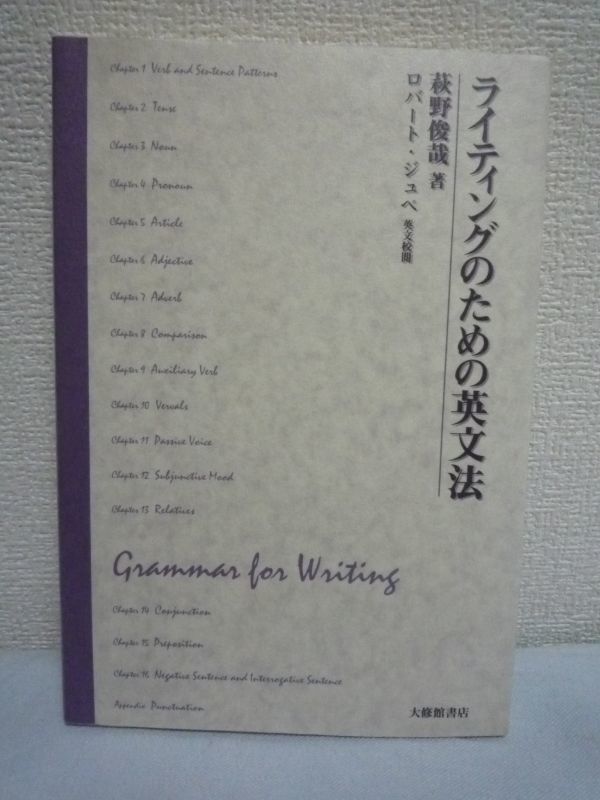 ライティングのための英文法
萩野俊哉 著
ロバート・ジュペ 英文校閲
Chapter 1 Verb and Sentence Patterns
Chapter 2 Tense
Chapter 3 Noun
Chapter 4 Pronoun
Chapter 5 Article
Chapter 6 Adjective
Chapter 7 Adverb
Chapter 8 Comparison
Chapter 9 Auxiliary Verb
Chapter 10 Vervals
Chapter 11 Passive Voice
Chapter 12 Subjunctive Mood
Chapter 13 Relatives
Grammar for Writing
Chapter 14 Conjunction
Chapter 15 Preposition
Chapter 16 Negative Sentence and Interrogative Sentence
Appendix Punctuation
大修館書店